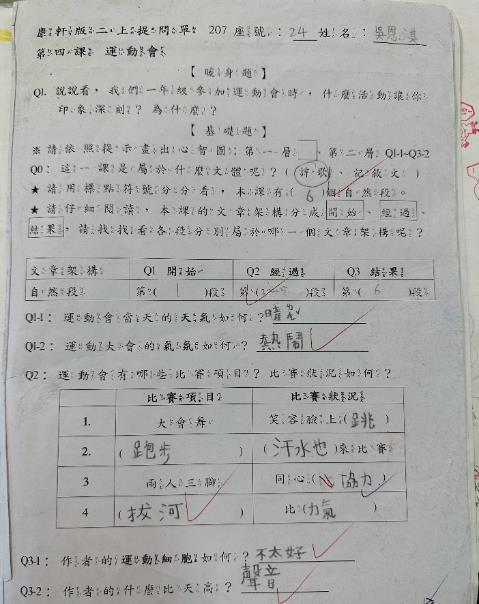 康軒版二上提問單 207 座號:24 姓名:吳恩淇
第四課 運動會
【暖身題】
Q1. 說說看，我們一年級參加運動會時，什麼活動讓你
印象深刻？為什麼？
【基礎題】
※請依照提示畫出心智圖:第一層 、第二層 Q1-1~Q3-2
Q0: 這一課是屬於什麼文體呢？(詩歌、記敘文)
★請用標點符號分分看，本課有(6)個自然段。
★請仔細閱讀，本課的文章架構分成開始、經過、
結果，請找找看各段分別屬於哪一個文章架構呢？
文章架構 Q1 開始 Q2 經過 Q3 結果
自然段 第(1)段 第( )段 第(6)段
Q1-1: 運動會當天的天氣如何？晴
Q1-2: 運動大會的氣氛如何？熱鬧
Q2: 運動會有哪些比賽項目？比賽狀況如何？
比賽項目 比賽狀況
1. 大會舞 笑容臉上(跳)
2. (跑步) (汗水也)來比賽
3 兩人三腳 同心(協力)
4 (拔河) 比(力氣)
Q3-1: 作者的運動細胞如何？不太好
Q3-2: 作者的什麼比天高？聲音